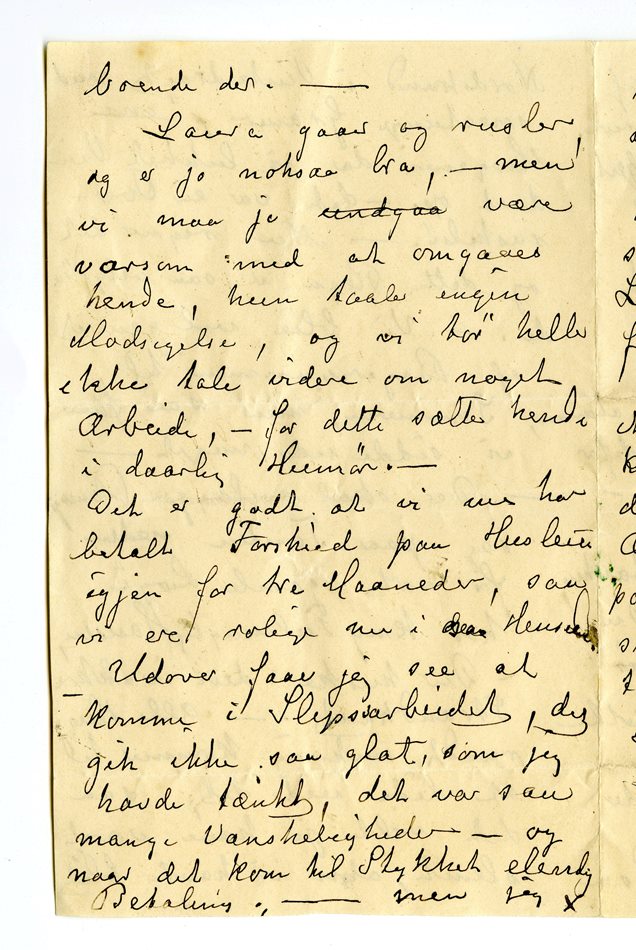 boende der. —
Laura gaar og rusler,
og er jo noksaa bra, — men
vi maa jo undgaa være
varsom med at omgaaes
hende, hun taale engen
Modsigelse, og vi tør helle
ikke tale videre om noget
Arbeide, — for dette sætte hende
i daarlig Humør. —
Det er godt at vi nu har
betalt Forskud paa Husleie
igjen for tre Maaneder, saa
vi ere rolige nu i Henseende.
— Udover faar jeg see at
komme i Slipsarbeidet, det
gik ikke saa glat, som jeg
havde tænkt, det var saa
mange Vanskeligheder — og
naar det kom til Stykket elendig
Betaling. — men jeg x